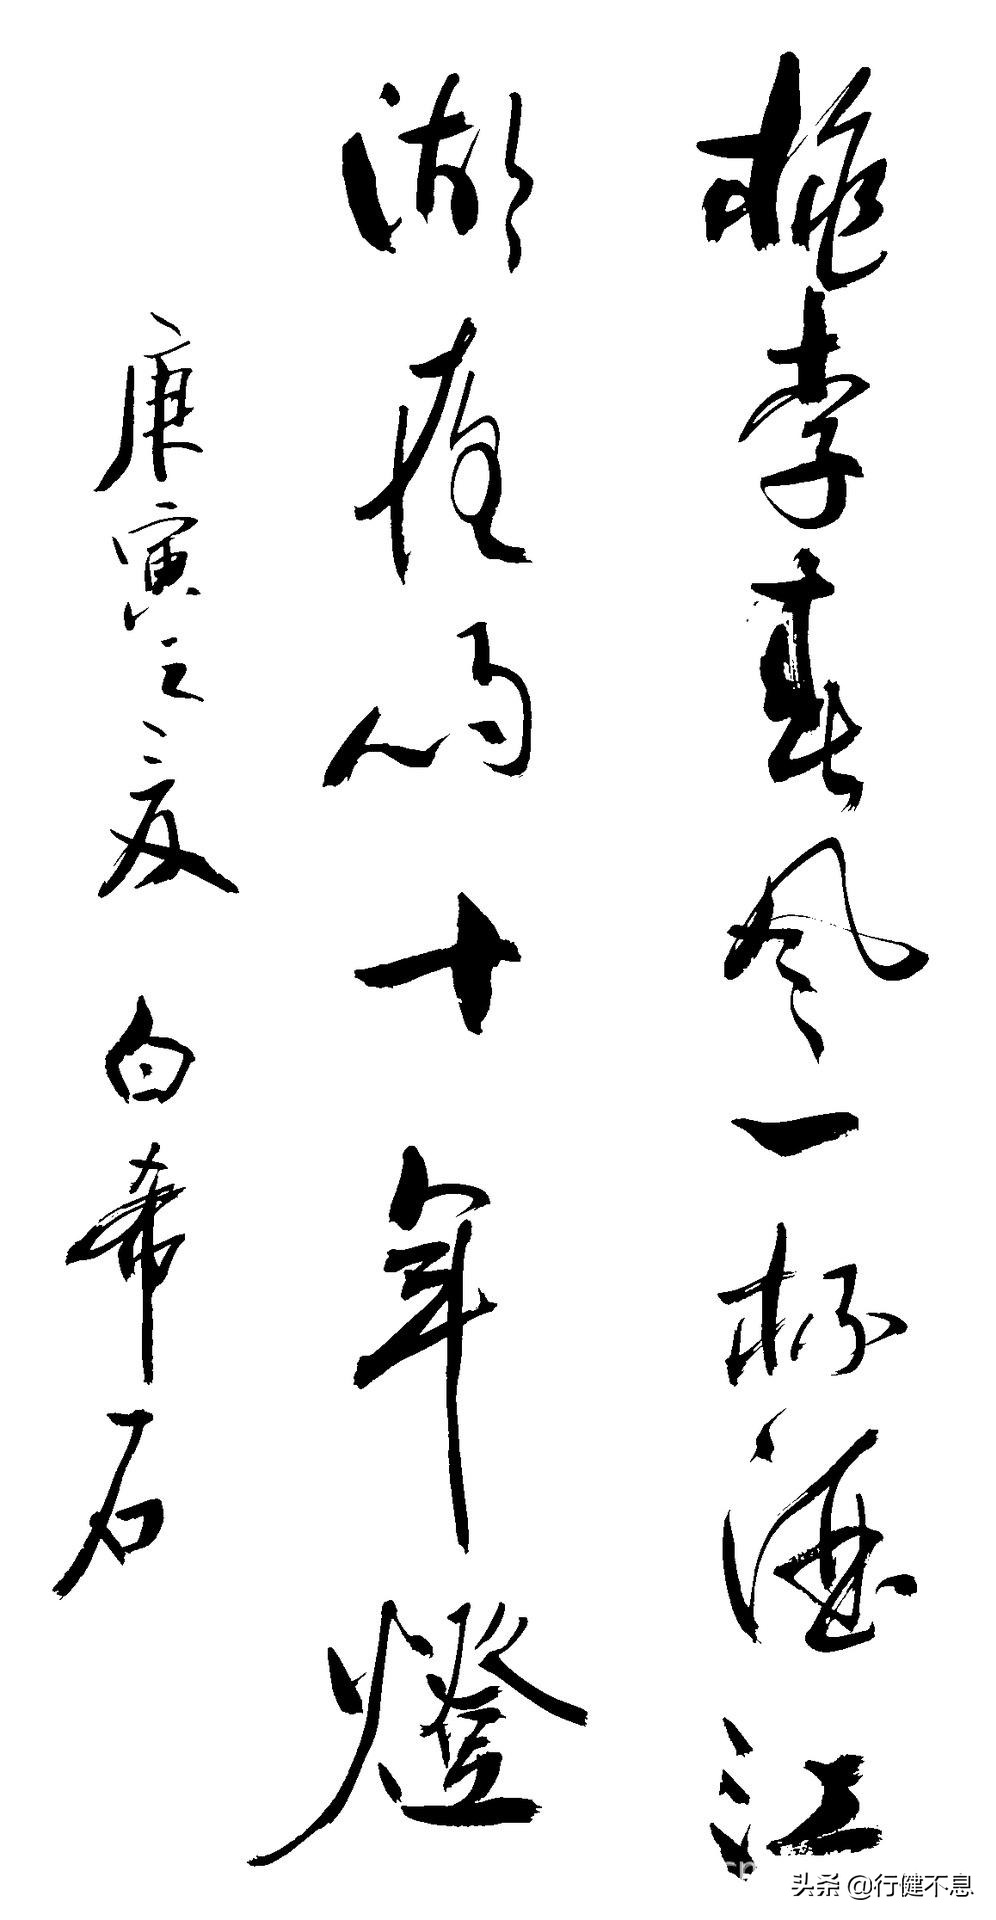 桃李春風一杯酒江
湖夜雨十年燈
庚寅之夏 白希石
头条 @行健不息